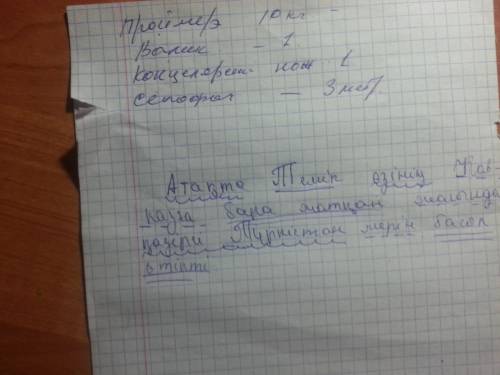 Праймерэ 10 кг -
Валик - 1
Концелярски нож 1
— 3 мет.
Атақты Темір өзінің Кав-
казға бара жатқан жолында
қазіргі Түркістан жерін басып
өтіпті